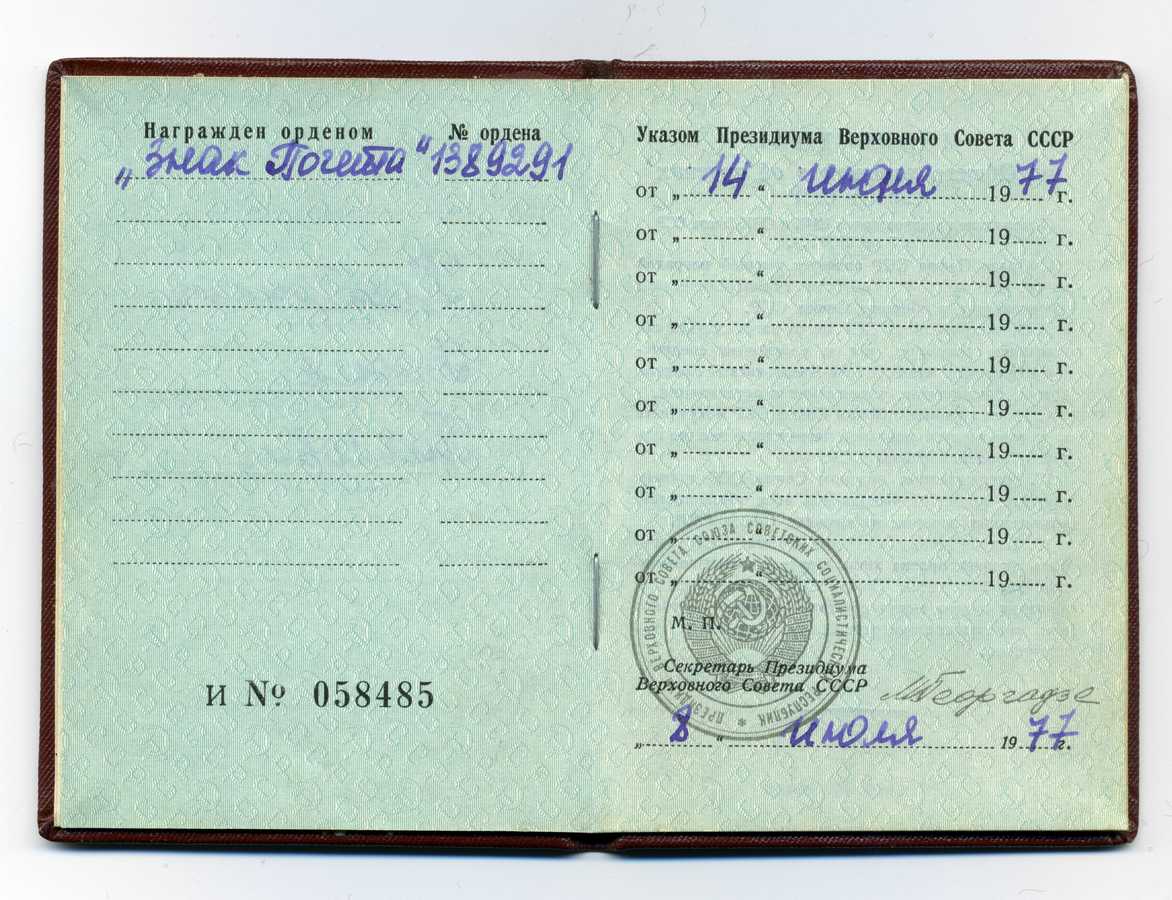 Награжден орденом № ордена
„Знак Почета“ 1389291
И № 058485
Указом Президиума Верховного Совета СССР
от „ 14 “ июня 19 77 г.
от „ “ 19 г.
от „ “ 19 г.
от „ “ 19 г.
от „ “ 19 г.
от „ “ 19 г.
от „ “ 19 г.
от „ “ 19 г.
от „ “ 19 г.
от „ “ 19 г.
ПРЕЗИДИУМ ВЕРХОВНОГО СОВЕТА СОЮЗА СОВЕТСКИХ СОЦИАЛИСТИЧЕСКИХ РЕСПУБЛИК *
М. П.
Секретарь Президиума
Верховного Совета СССР МГеоргадзе
„ 8 “ июля 19 77 г.